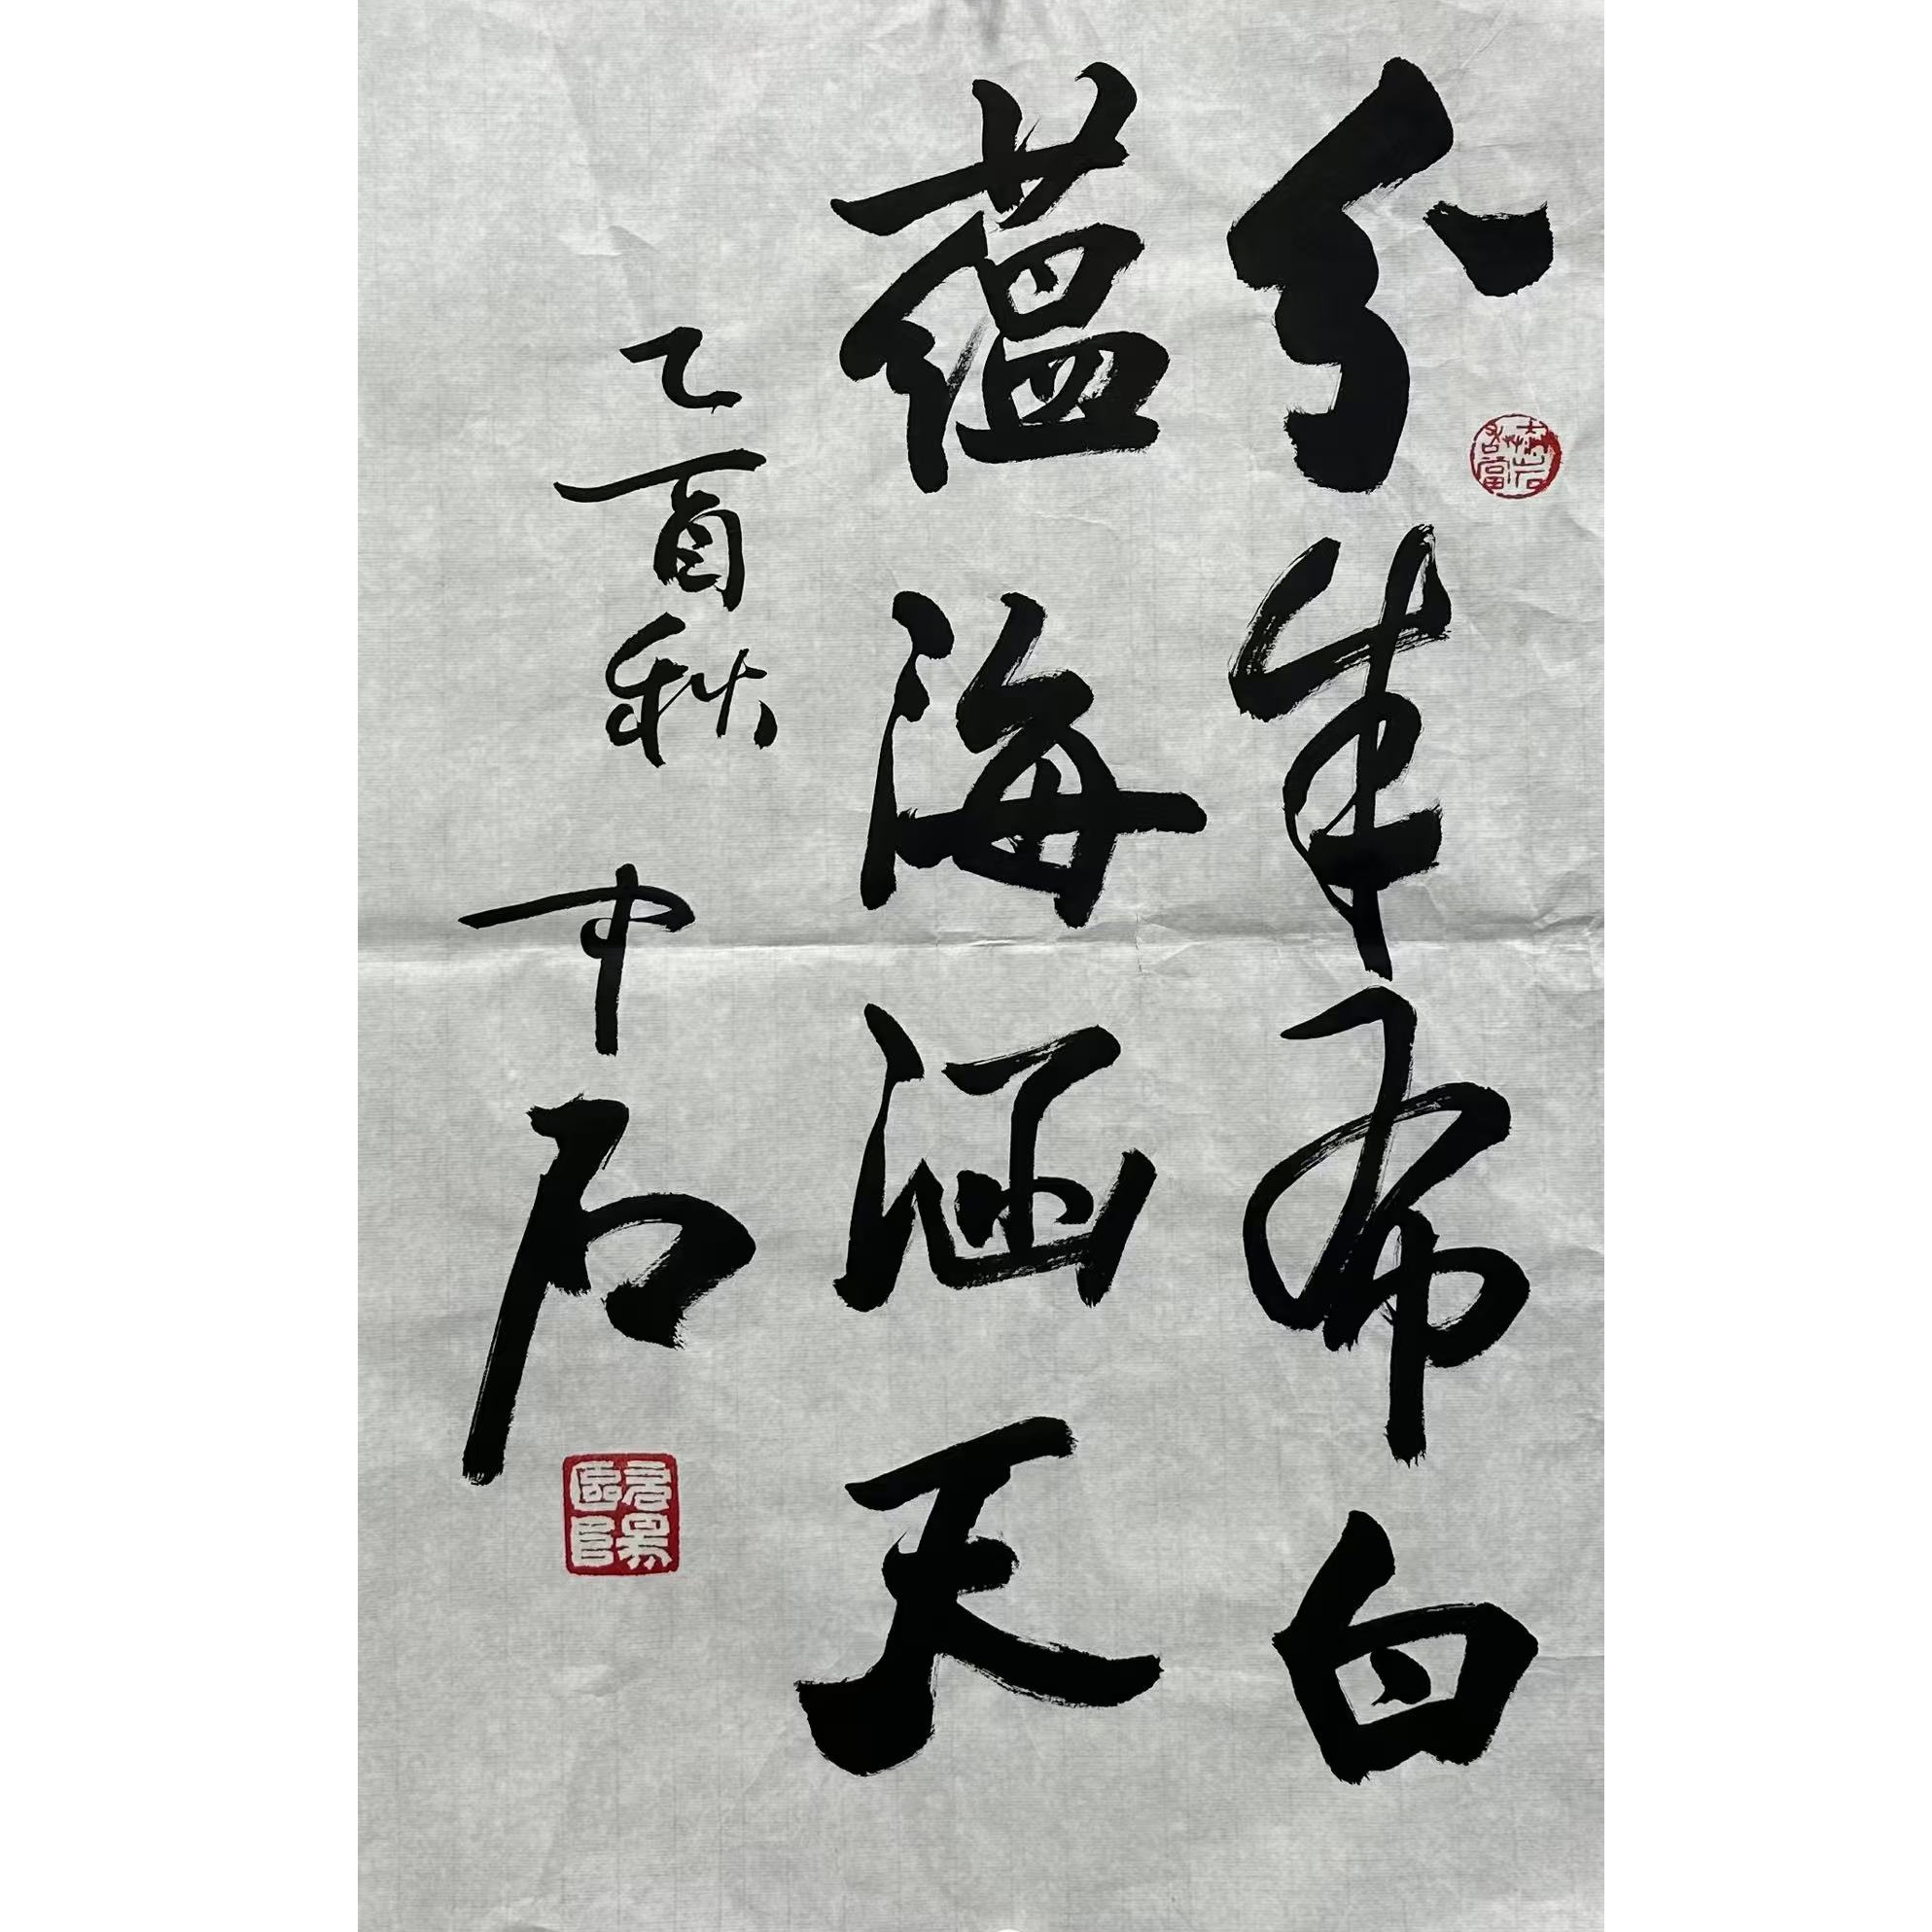 分朱布白
蕴海涵天
乙酉秋 中石